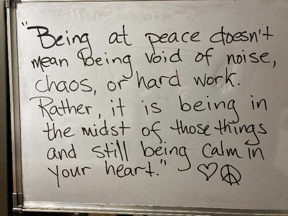 "Being at peace doesn't
mean being void of noise,
chaos, or hard work.
Rather, it is being in
the midst of those things
and still being calm in
your heart."